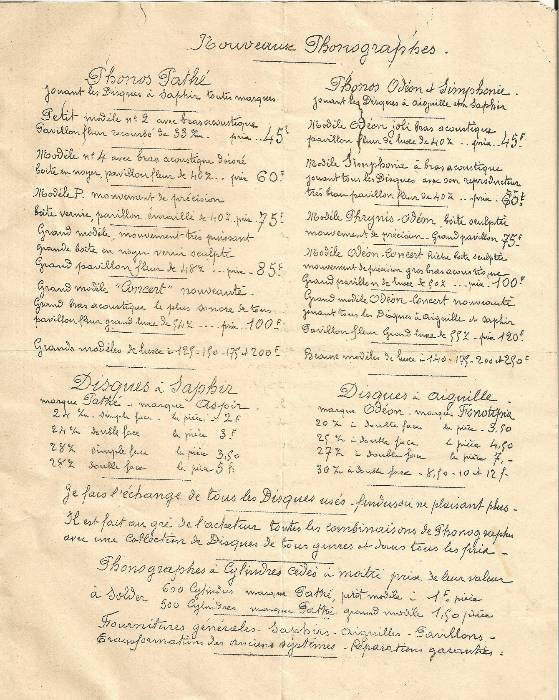 Nouveaux Phonographes.
Phonos Pathé
jouant les Disques à saphir toutes marques
Petit modèle n° 2 avec bras acoustique
Pavillon fleur recourbé de 33 % .. prix .. 45f
Modèle n° 4 avec bras acoustique doré
boîte en noyer, pavillon fleur de 40 % .. prix 60f
Modèle P. mouvement de précision
boîte vernie, pavillon émaillé de 40 %. prix 75f
Grand modèle, mouvement très puissant
grande boîte en noyer verni sculpté
Grand pavillon fleur de 48 % ... prix .. 85f
Grand modèle "Concert" nouveauté.
Grand bras acoustique le plus sonore de tous
pavillon fleur grand luxe de 54 % .... prix 100f
Grands modèles de luxe à 125-150-175 et 200f
Phonos Odéon et Simphonie.
jouant les Disques à aiguille et à Saphir
Modèle Odéon joli bras acoustique
pavillon fleur de luxe de 40 % .. prix .. 45f
Modèle Simphonie à bras acoustique
jouant tous les Disques avec son reproducteur
très beau pavillon fleur de 40 % .. prix 60f
Modèle Phrynis-Odéon boîte sculptée
mouvement de précision - Grand pavillon 75f
Modèle Odéon-Concert riche boîte sculptée
mouvement de précision gros bras acoustique
Grand pavillon de luxe de 50 % ... prix .. 100f
Grand modèle Odéon-Concert nouveauté
jouant tous les Disques à aiguille et à saphir
Pavillon fleur Grand luxe de 55 % prix 120f
Beaux modèles de luxe à 140-175-200 et 250f
Disques à Saphir
marque Pathé - marque Aspir
24 % simple face - la pièce - 2f
24 % double face la pièce 3f
28 % simple face la pièce 3,50
28 % double face - la pièce 5f
Disques à aiguille.
marque Odéon - marque Fonotipia
20 % à double face la pièce 3,50
25 % à double face la pièce 4,50
27 % à double face la pièce 7,-
30 % à double face - 8,50 - 10 et 12f
Je fais l'échange de tous les Disques usés - fendus ou ne plaisant plus -
Il est fait au gré de l'acheteur toutes les combinaisons de Phonographes
avec une Collection de Disques de tous genres et dans tous les prix -
Phonographes à Cylindres cédés à moitié prix de leur valeur
à Solder 600 Cylindres marque Pathé, petit modèle à 1f pièce
500 Cylindres marque Pathé grand modèle 1,50 pièce
Fournitures générales - Saphirs - Aiguilles - Pavillons -
Transformation des anciens systèmes - Réparations garanties.